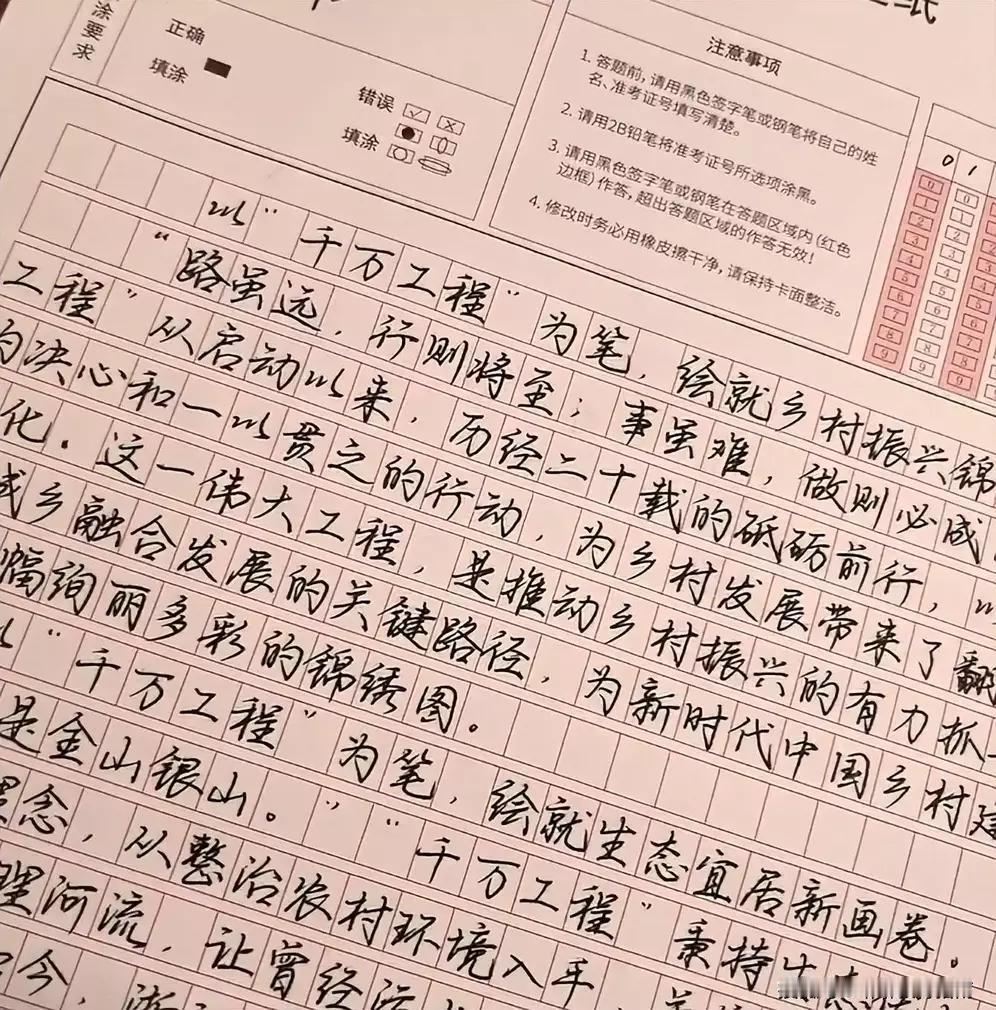 涂要求
正确
填涂
错误
填涂
注意事项
1. 答题前,请用黑色签字笔或钢笔将自己的姓
名、准考证号填写清楚。
2. 请用2B铅笔将准考证号所选项涂黑。
3. 请用黑色签字笔或钢笔在答题区域内(红色
边框)作答,超出答题区域的作答无效!
4. 修改时务必用橡皮擦干净,请保持卡面整洁。
0 1
以“千万工程”为笔,绘就乡村振兴锦
“路虽远,行则将至;事虽难,做则必成
工程”从启动以来,历经二十载的砥砺前行,以
的决心和一以贯之的行动,为乡村发展带来了翻
化.这一伟大工程,是推动乡村振兴的有力抓
城乡融合发展的关键路径,为新时代中国乡村建
幅绚丽多彩的锦绣图。
以“千万工程”为笔,绘就生态宜居新画卷。
是金山银山。”“千万工程”秉持
念,从整治农村环境入手
理河流,让曾经
今,浙